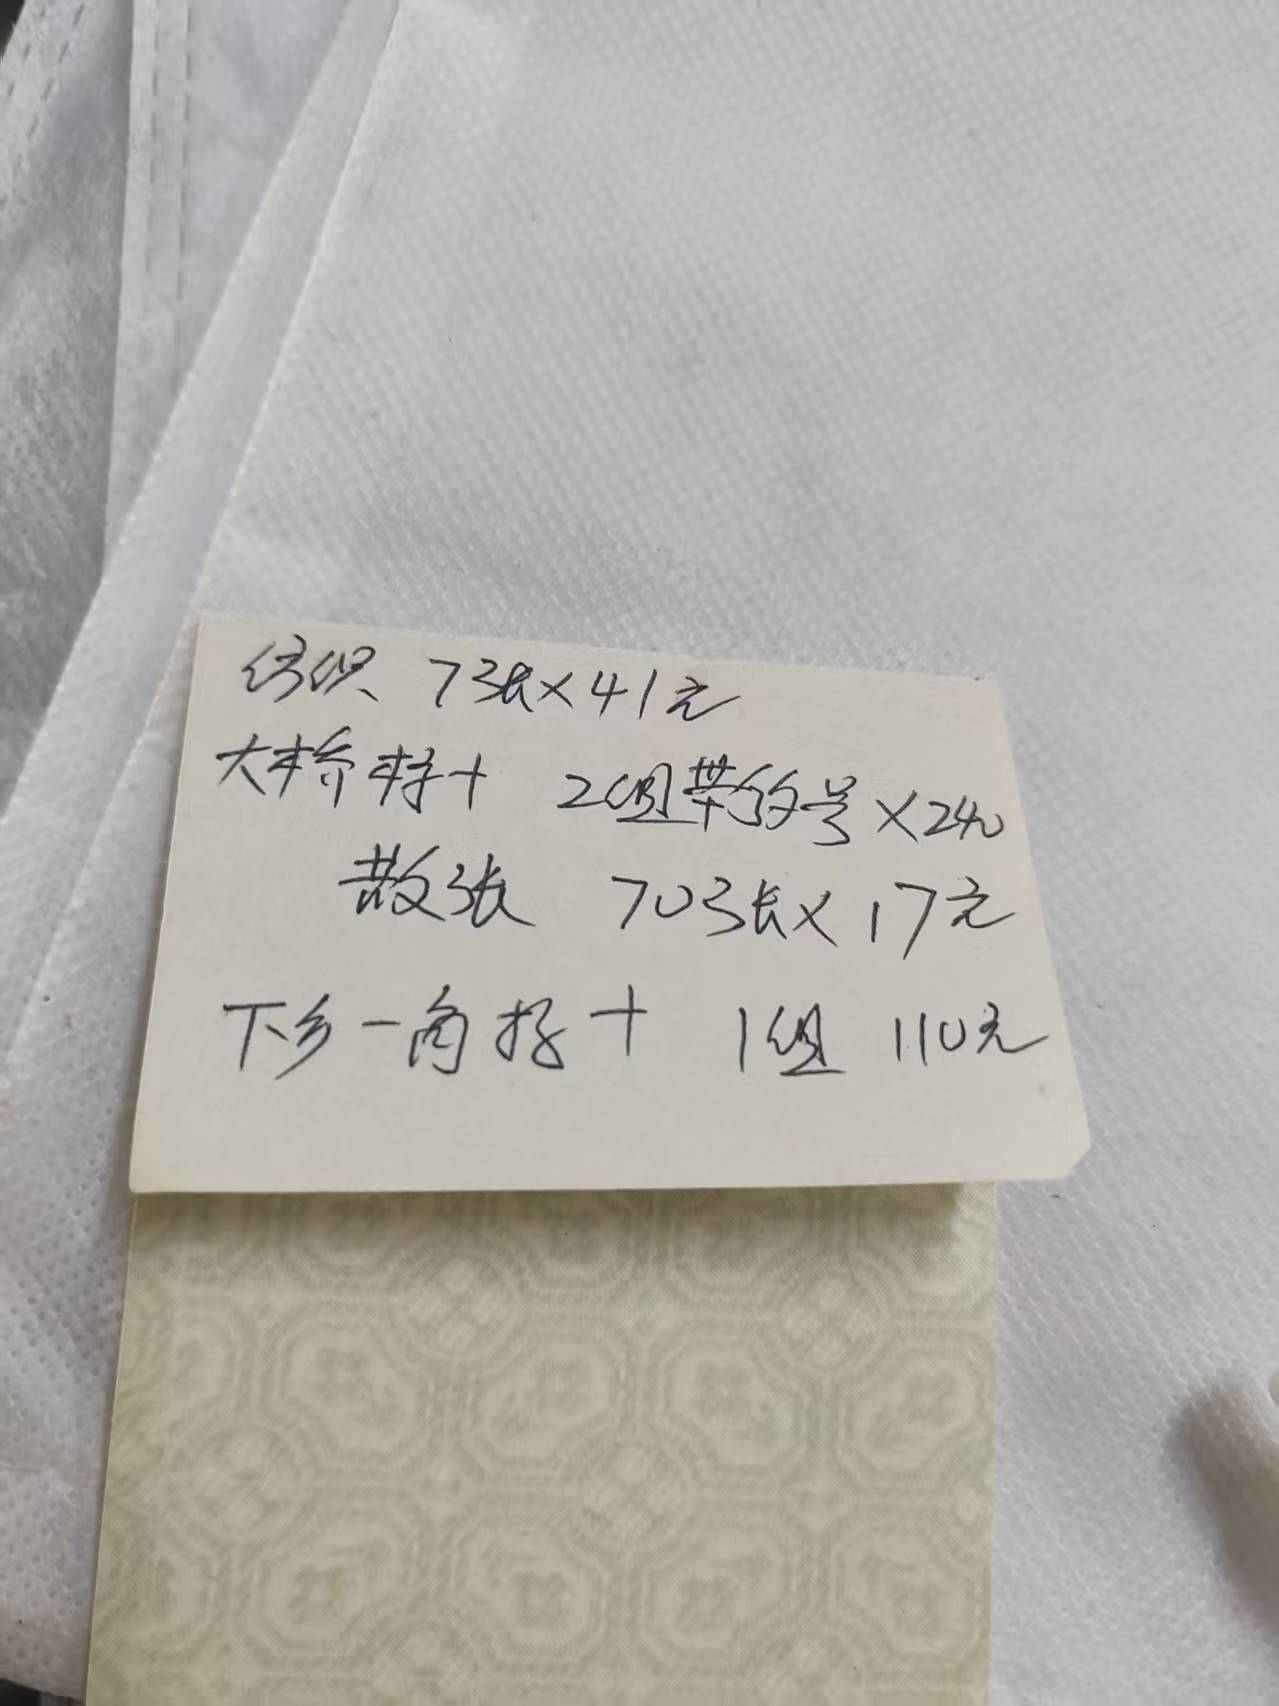 纺织 7张×41元
大桥标十 2组带的号×240
散张 70张×17元
下乡一角标十 1组 110元